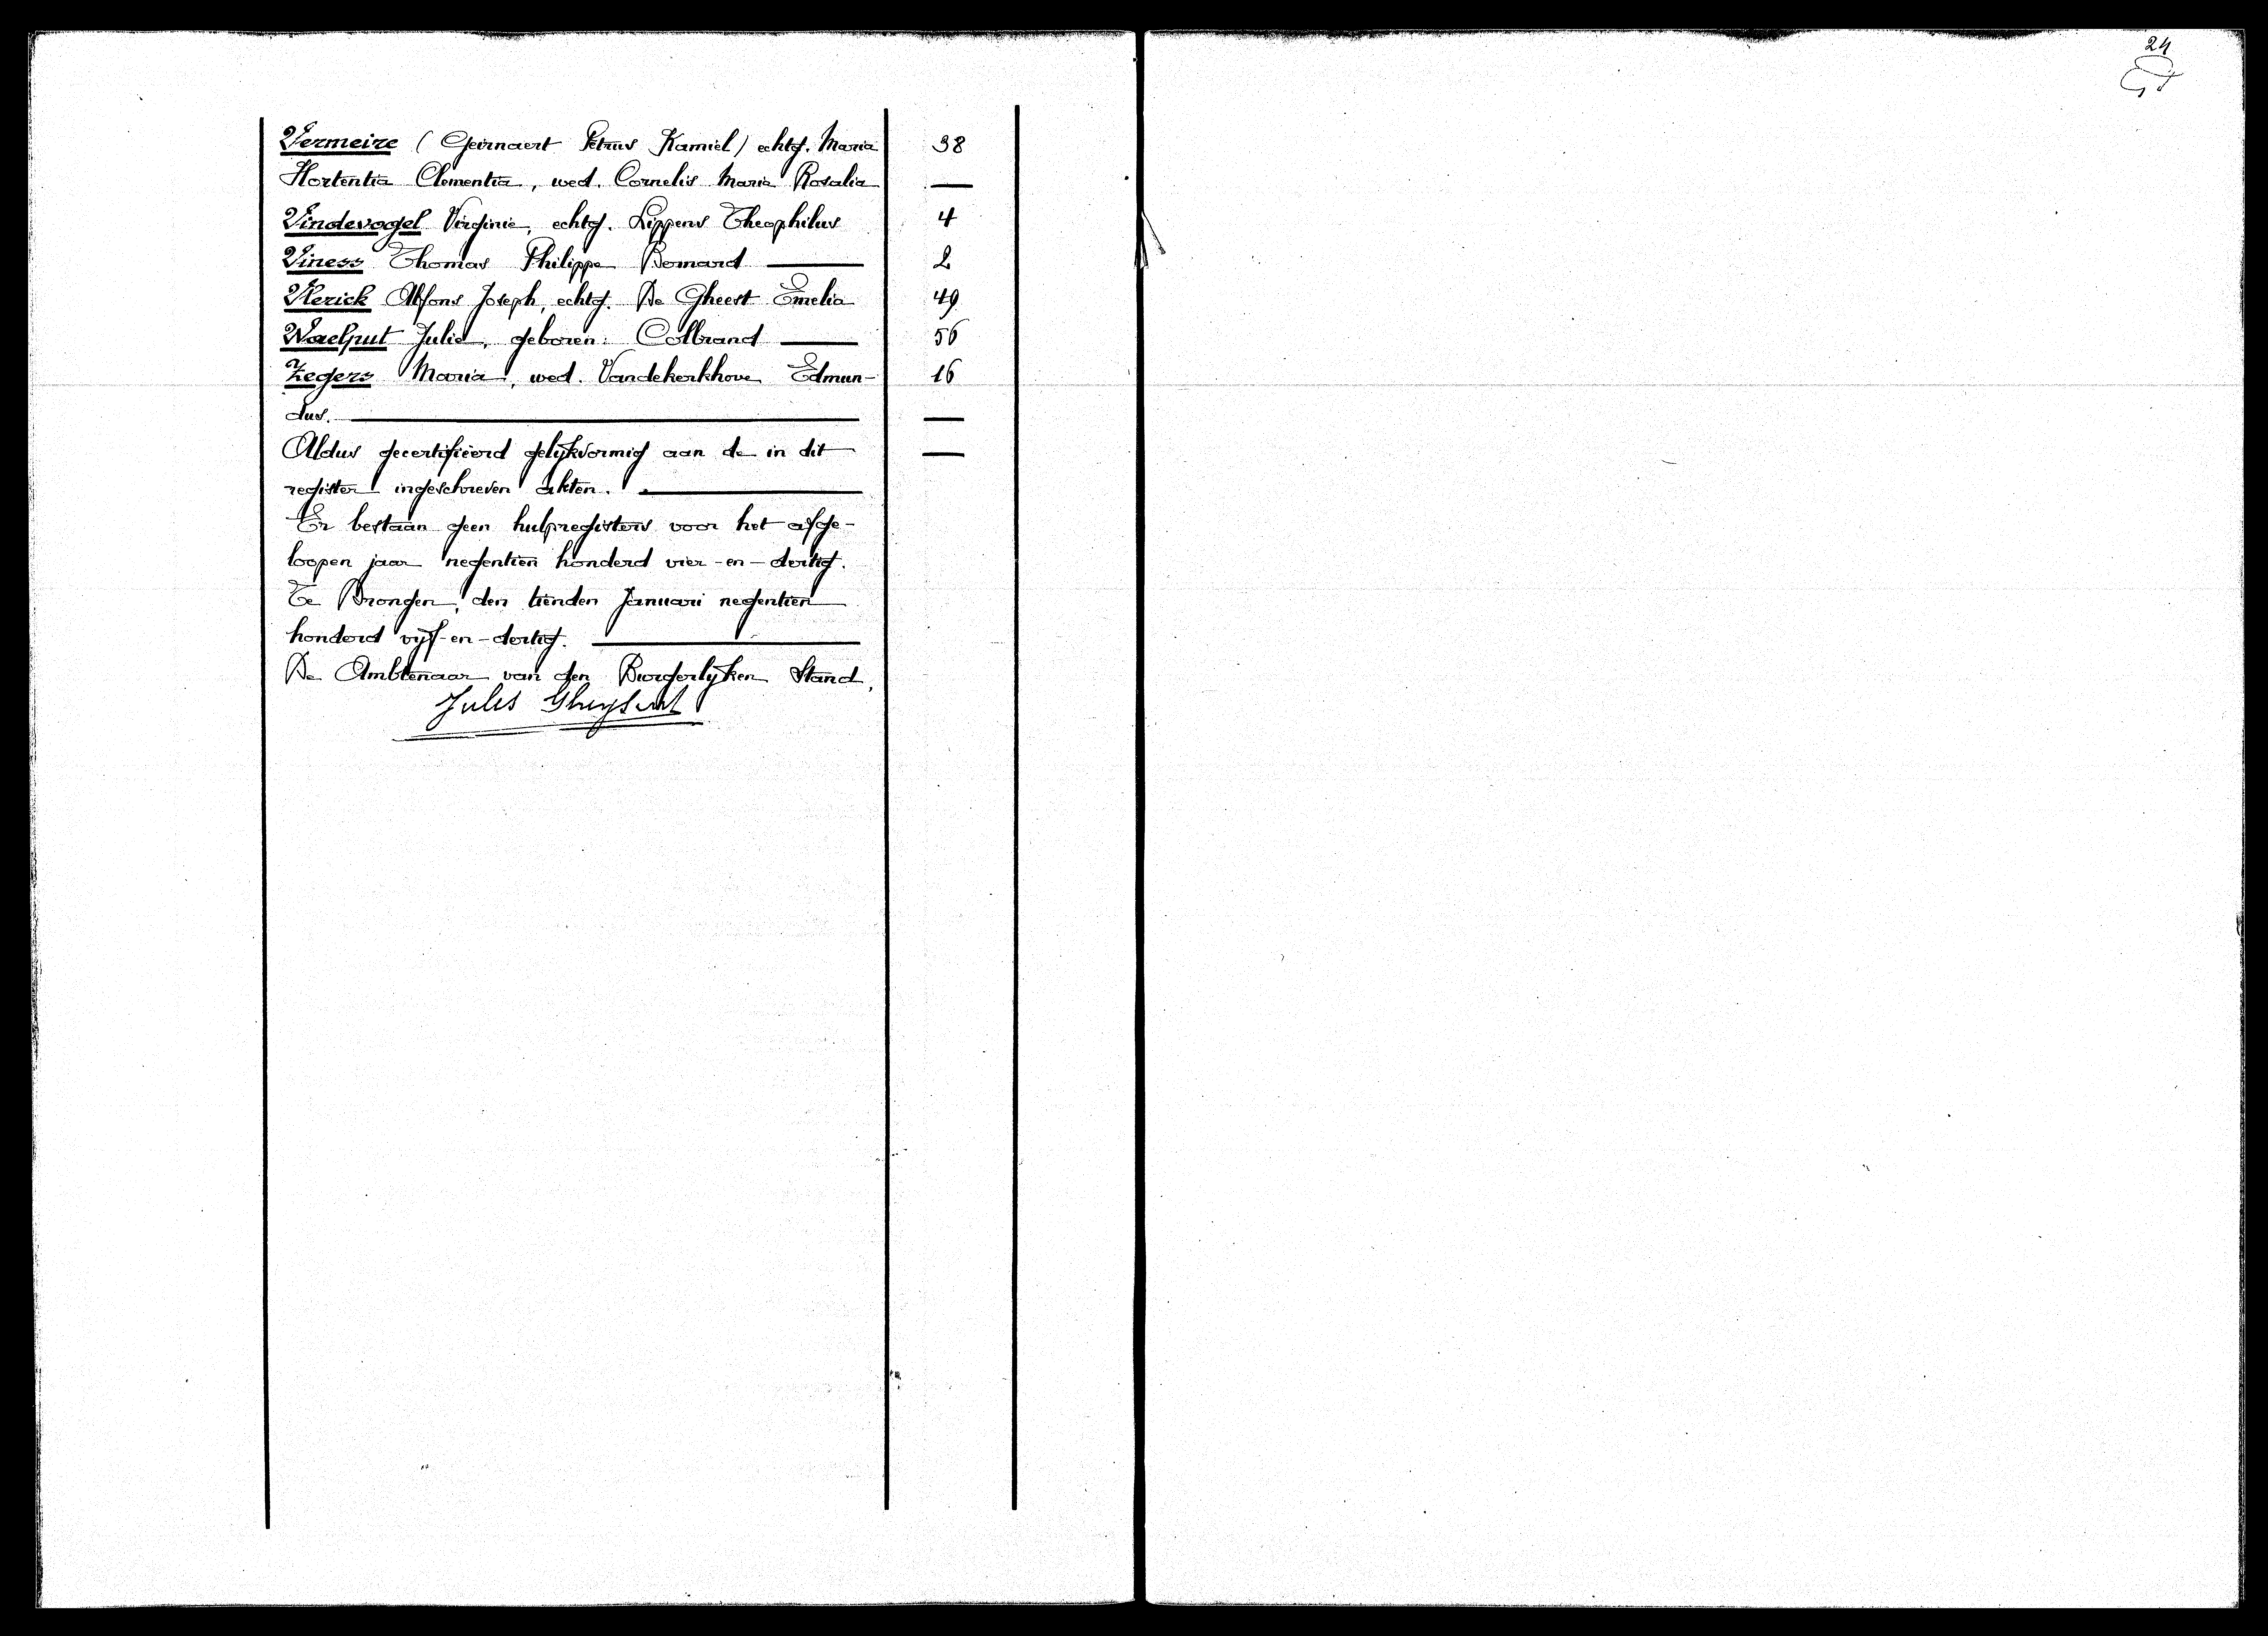 24
Vermeire (Geirnaert Petrus Kamiel) echtg. Maria 38
Hortentia Clementia, wed. Cornelis Maria Rosalia —
Vindevogel Virginie, echtg. Lippens Theophilus 4
Viness Thomas Philippe Bernard — 2
Vlerick Alfons Joseph, echtg. De Gheest Emelia 49
Waelput Julia, geboren: Colbrand — 56
Zegers Maria, wed. Vandekerkhove Edmun- 16
dus. — —
Aldus gecertifieerd gelijkvormig aan de in dit —
register ingeschreven akten. —
Er bestaan geen hulpregisters voor het afge-
loopen jaar negentien honderd vier-en-dertig.
Te Drongen, den tienden Januari negentien
honderd vijf-en-dertig. —
De Ambtenaar van den Burgerlijken Stand,
Jules